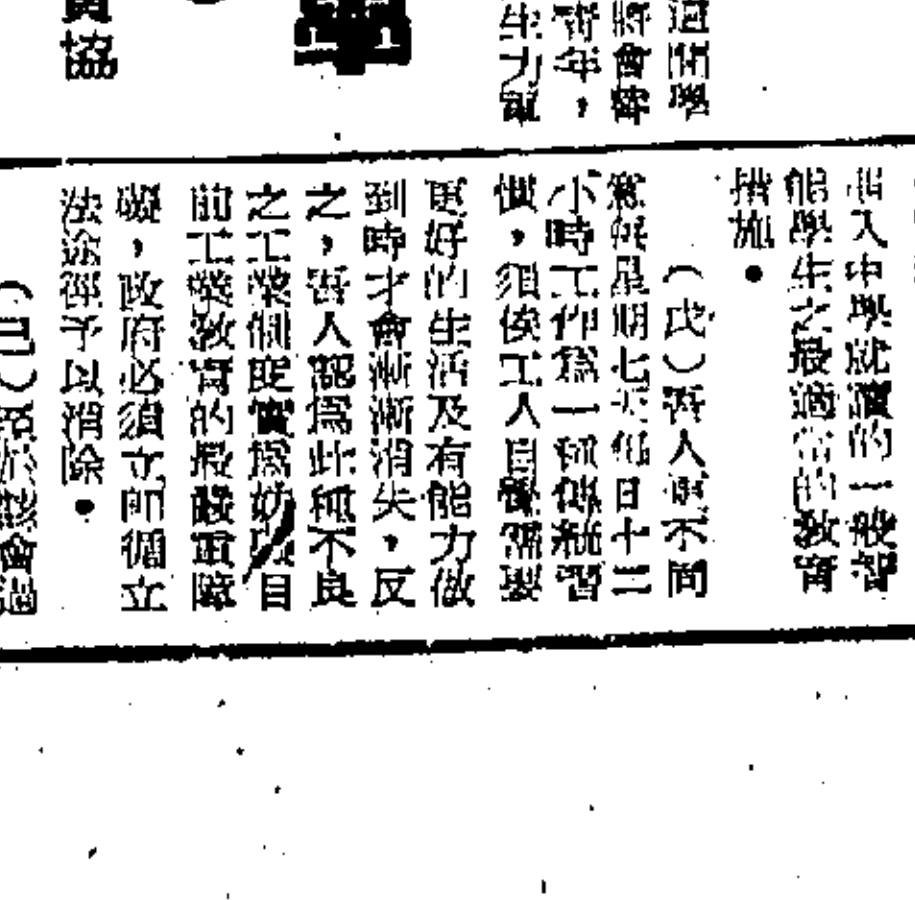 過開學
將會幹
青年，
生力軍
員協
進入中學就讀的一般智
能學生之最適當的教育
措施•
（戊）吾人更不同
意每星期七天每日十二
小時工作爲一種傳統習
慣，須俟工人自覺需要
更好的生活及有能力做
到時才會漸漸消失，反
之，吾人認爲此種不良
之工業制度實爲妨　目
前工業敎育的最嚴重障
礙，政府必須立即循立
法途徑予以消除•
（己）　於該會過